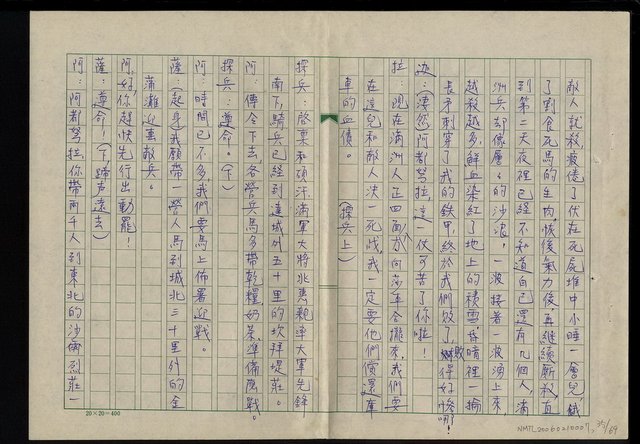 敵人就殺，疲倦了伏在死屍堆中小睡一會兒，餓
了割食死馬的生肉恢復氣力後，再繼續斬殺，直
到第二天夜裡已經不知道自己還有幾個人，滿
洲兵卻像層々的沙浪，一波接著一波湧上來，
越殺越多，鮮血染紅了地上的積雪，昏暗裡一掄
長矛刺穿了我的鐵甲，終於我們敗了，敗得好慘喲！
迪：（淒然）阿都弩拉，這一仗可苦了你啦！
拉：現在滿洲人正四面八方向莎車合攏來，我們要
在這兒和敵人決一死戰，我一定要他們償還庫
車的血債。
（探兵上）
探兵：啟稟和碩汗，滿軍大將兆惠親率大軍先鋒
南下，騎兵已經到達城外五十里的坎拜堤莊。
阿：傳令下去，各營兵馬多帶乾糧奶茶，準備應戰。
探兵：遵命。（下）
阿：時間已不多，我們要馬上佈署迎戰。
薩：（起身）我願帶一營人馬到城北三十里外的金
蒲灘迎裏敵兵。
阿：好，你趕快先行出動罷！
薩：遵命！（下，蹄声遠去）
阿：阿都弩拉，你帶兩千人到東北的沙爾烈莊一
20×20=400
NMTL20060210007, 35/69